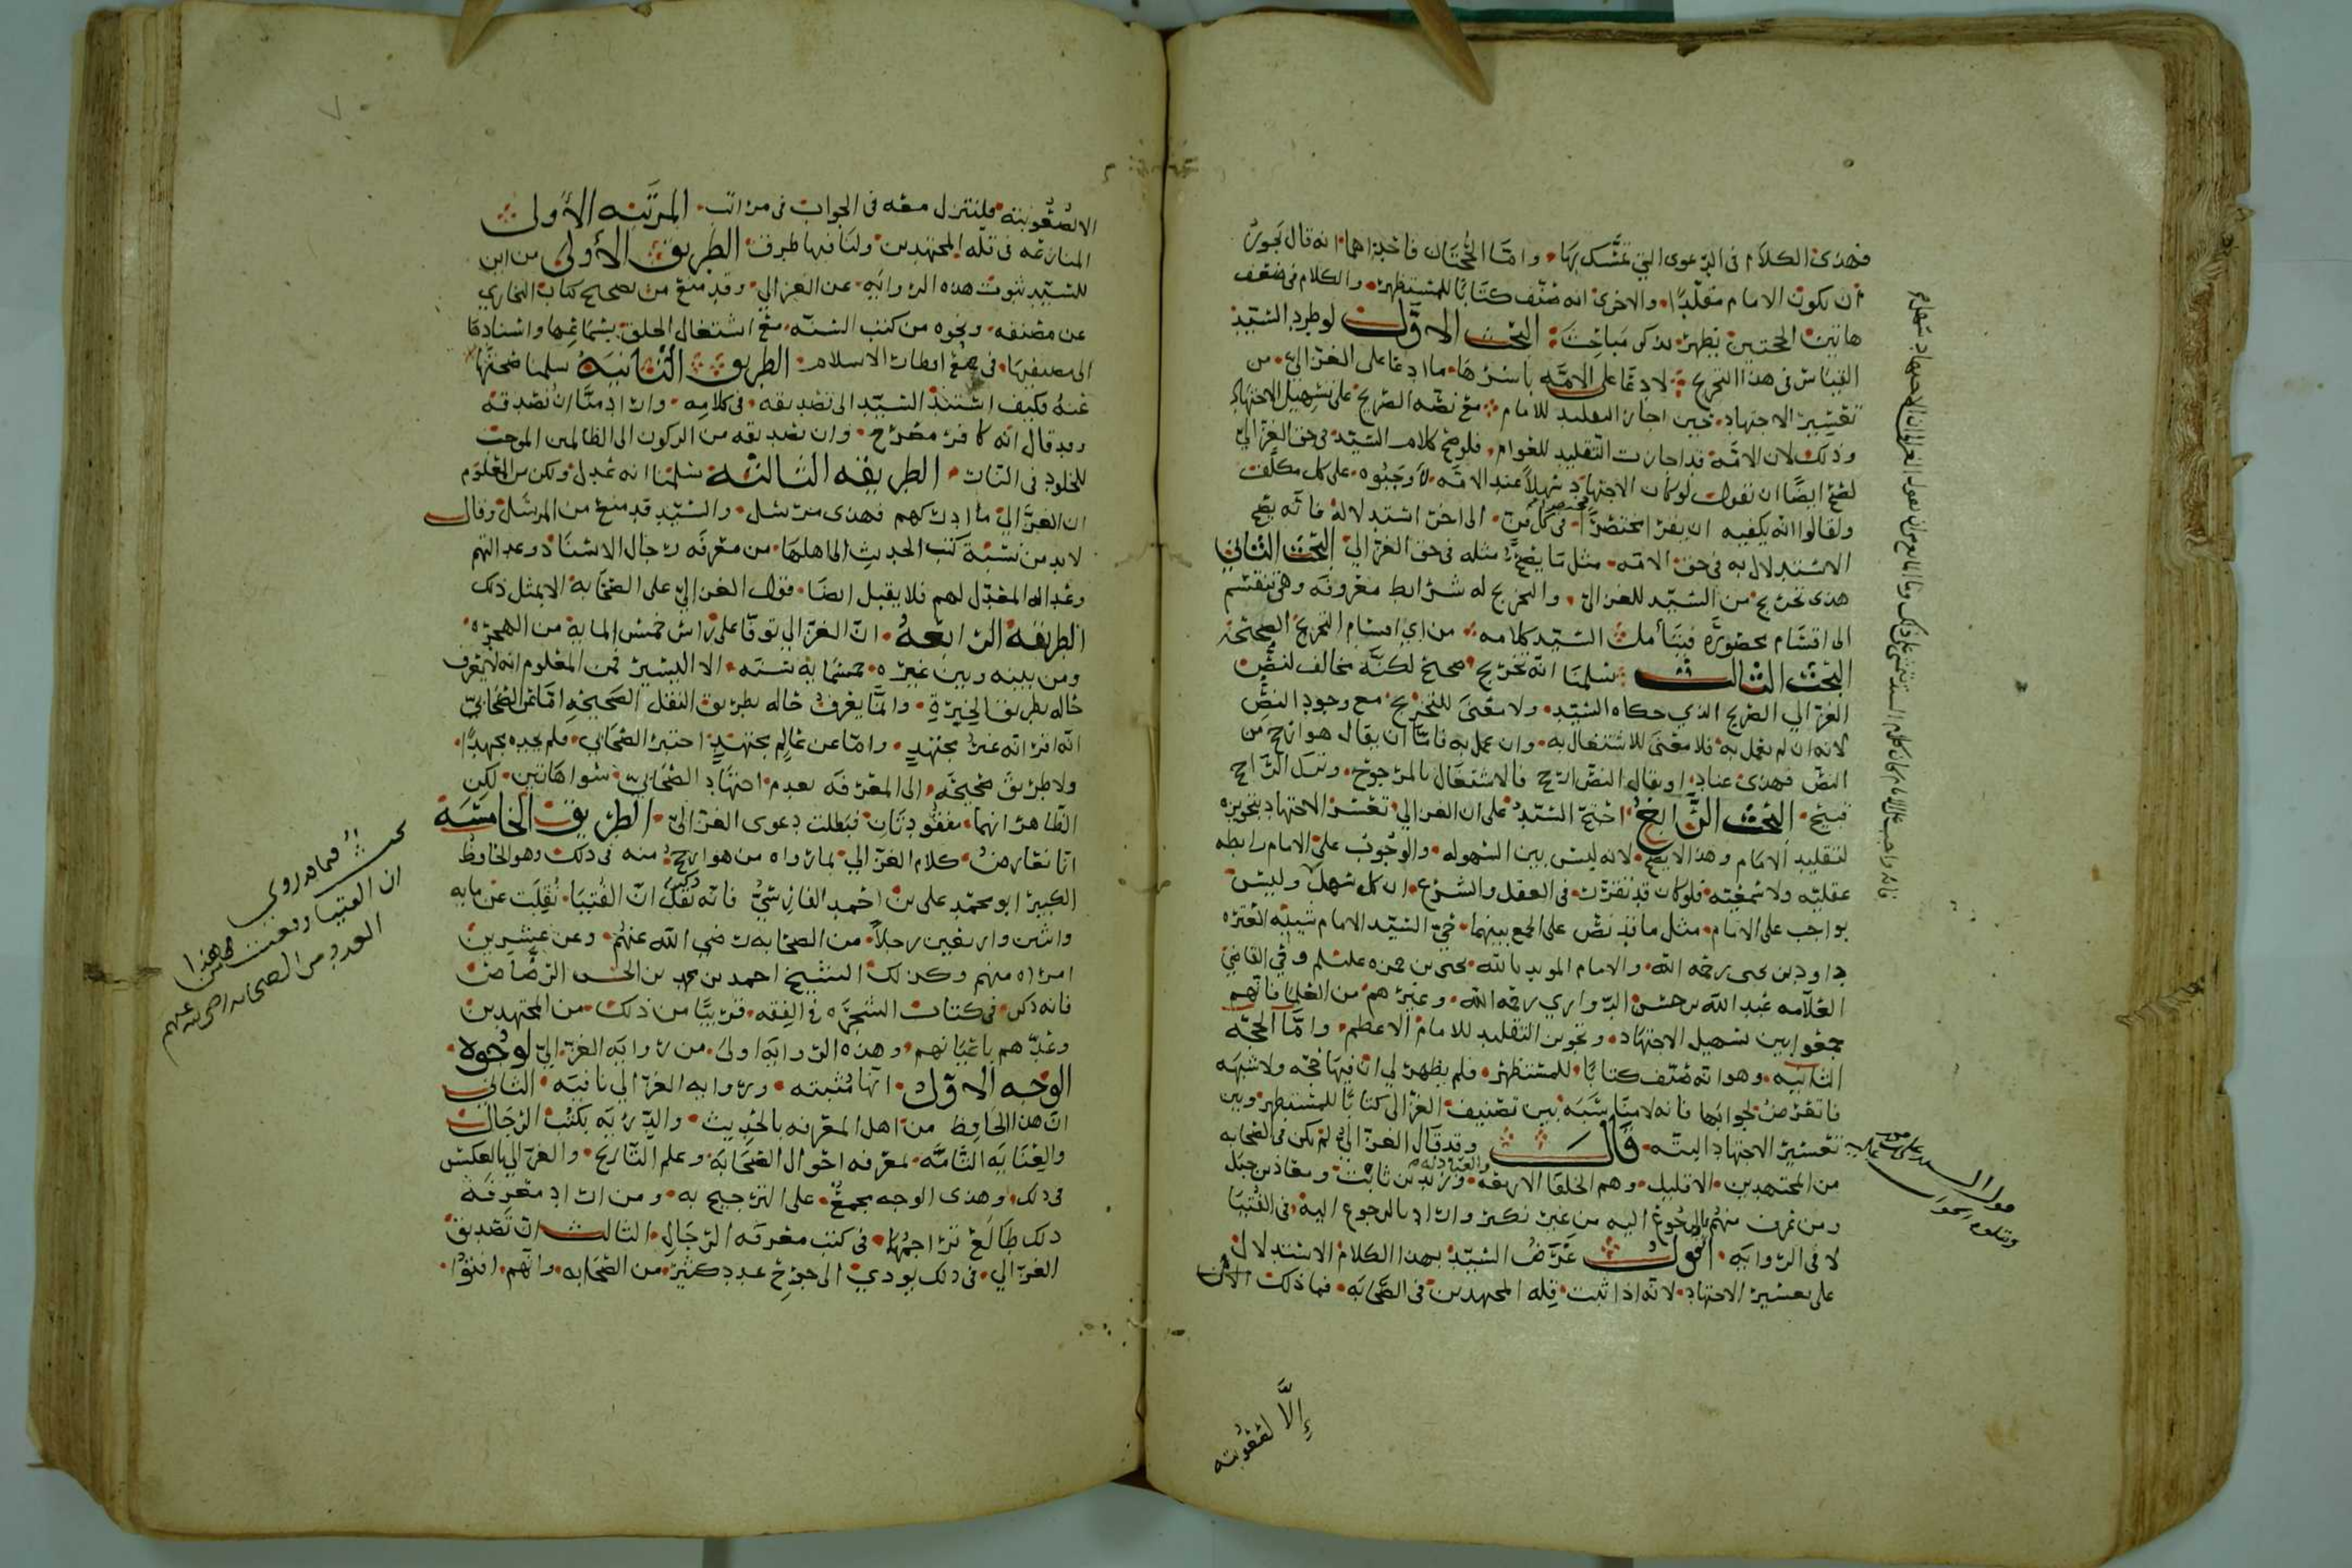 فهذى الكلام في الدعوى التي تمسك بها، واما الحجتان فاحداهما انه قال بجوز
ان يكون الامام مقلدا، والاخرى انه صنف كتابا للمستظهر، والكلام في ضعف
هاتين الحجتين يظهر بذكر مباحث: البحث الاول لو طرد السيد
القياس في هذا التخريج لادعا على الامة باسرها، ما ادعا على الغزالي، من
تعسير الاجتهاد، حين اجاز التقليد للامام مع نصه الصريح على تسهيل الاجتهاد
وذلك لان الامة قد اجازت التقليد للعوام، فلو صح كلام السيد في حق الغزالي
لصح ايضا ان نقول لو كان الاجتهاد سهلا عند الامة لأوجبوه على كل مكلف
ولقالوا انه يكفيه ان يقرا مختصرا في كل فن، الى اخر استدلاله فانه يصح
الاستدلال به في حق الامه، مثل ما يصح مثله في حق الغزالي البحث الثاني
هذى تخريج من السيد للغزالي، والتخريج له شرايط معروفه وهي تنقسم
الى اقسام محصورة فيتأمل السيد كلامه من اي اقسام التخريج الصحيحة
البحث الثالث سلمنا انه تخريج صحيح لكنه مخالف لنص
الغزالي الصريح الذي حكاه السيد، ولا معنى للتخريج مع وجود النص
لانه ان لم يعمل به فلا معنى للاشتغال به، وان عمل به فاما ان يقال هو ارجح من
النص فهذى عناد، او يقال النص ارجح فالاشتغال بالمرجوح، وترك الراجح
قبيح، البحث الرابع احتج السيد على ان الغزالي تعسر الاجتهاد بتجويزه
لتقليد الامام وهذا لا يصح، لانه ليس بين السهوله، والوجوب على الامام رابطه
عقليه ولا سمعيه، فلو كان قد تقرر في العقل والشرع، ان كل سهل وليس
بواجب على الامام، مثل ما قد نص على الجمع بينهما، حي السيد الامام شيبه العتره
داود بن يحيى رحمه الله، والامام المويد بالله، يحيى بن حمزه عليلم وحي القاضي
العلامه عبد الله بن حسن الدواري رحمه الله، وغيرهم من العلما فانهم
جمعوا بين تسهيل الاجتهاد، وتجويز التقليد للامام الاعظم، واما الحجه
الثانيه، وهو انه صنف كتابا للمستظهر، فلم يظهر لي ان فيها حجه ولا شبهه
فاتعرض لجوابها فانه لا مناسبة بين تصنيف الغزالي كتابا للمستظهر وبين
تعسير الاجتهاد البته، قال وقد قال الغزالي لم يكن في الصحابه
من المجتهدين الا قليل، وهم الخلفا الاربعه، والعبادله وزيد بن ثابت، ومعاذ بن جبل
ومن عرف منهم بالرجوع اليه من غير نكير واراد بالرجوع اليه في الفتيا
لا في الروايه، اقول غرض السيد بهذا الكلام الاستدلال
على تعسير الاجتهاد، لانه اذا ثبت قله المجتهدين في الصحابه، فما ذلك الامر
إلا لصعوبته
الا لصعوبته، فلنتنزل معه في الجواب في مراتب، المرتبه الاولى
المنازعه في قله المجتهدين، ولنا فيها طرق الطريق الاولى من اين
للسيد ثبوت هذه الروايه، عن الغزالي، وقد منع من تصحيح كتاب البخاري
عن مصنفه، ونحوه من كتب السنه، مع اشتغال الخلق بسماعها واسنادها
الى مصنفيها، في جميع اقطار الاسلام، الطريق الثانيه سلمنا صحتها
عنه فكيف استند السيد الى تصديقه، في كلامه، واراد منا ان نصدقه
وقد قال انه كافر مصرح، وان تصديقه من الركون الى الظالمين الموجب
للخلود في النار، الطريقه الثالثه سلمنا انه عدل ولكن من المعلوم
ان الغزالي ما ادركهم فهذى مرسل، والسيد قد منع من المرسل وقال
لابد من نسبة كتب الحديث الى اهلها، من معرفه رجال الاسناد وعدالتهم
وعداله المعدل لهم فلا يقبل ايضا، قول الغزالي على الصحابه الا بمثل ذلك
الطريقه الرابعه، ان الغزالي توفا على راس خمس المايه من الهجره
ومن بينه وبين غيره، خمسمايه سنه، الا اليسير فمن المعلوم انه لا يعرف
حاله بطريق الخبرة، وانما يعرف حاله بطريق النقل الصحيحه اما عن الصحابي
انه اقر انه غير مجتهد، واما عن عالم مجتهد اختبر الصحابي، فلم يجده مجتهدا
ولا طريق صحيحه الى المعرفه بعدم اجتهاد الصحابي سوا هاتين، لكن
الظاهر انهما مفقودتان فبطلت دعوى الغزالي، الطريق الخامسه
انا نعارض كلام الغزالي، بما رواه من هو ارجح منه في ذلك وهو الحافظ
الكبير ابو محمد علي بن احمد الفارسي فانه نقل ان الفتيا، نقلت عن مايه
واثنين واربعين رجلا، من الصحابه رضي الله عنهم، وعن عشرين
امراه منهم وكذلك الشيخ احمد بن محمد بن الحسن الرصاص
فانه ذكر في كتاب الشجره في الفقه، قريبا من ذلك، من المجتهدين
وعدهم باعيانهم، وهذه الروايه اولى، من روايه الغزالي لوجوه
الوجه الاول، انها مثبته، وروايه الغزالي نافيه، الثاني
ان هذا الحافظ من اهل المعرفه بالحديث، والدربه بكتب الرجال
والعنايه التامه، لمعرفه احوال الصحابه، وعلم التاريخ، والغزالي بالعكس
في ذلك، وهذى الوجه مجمع على الترجيح به، ومن اراد معرفه
ذلك طالع تراجمهما، في كتب معرفه الرجال، الثالث ان تصديق
الغزالي، في ذلك يودي الى جرح عدد كثير، من الصحابه، وانهم افتوا
بحث فيما قد روي
ان الفتيا وقعت من هذا
العدد من الصحابه رضي الله عنهم